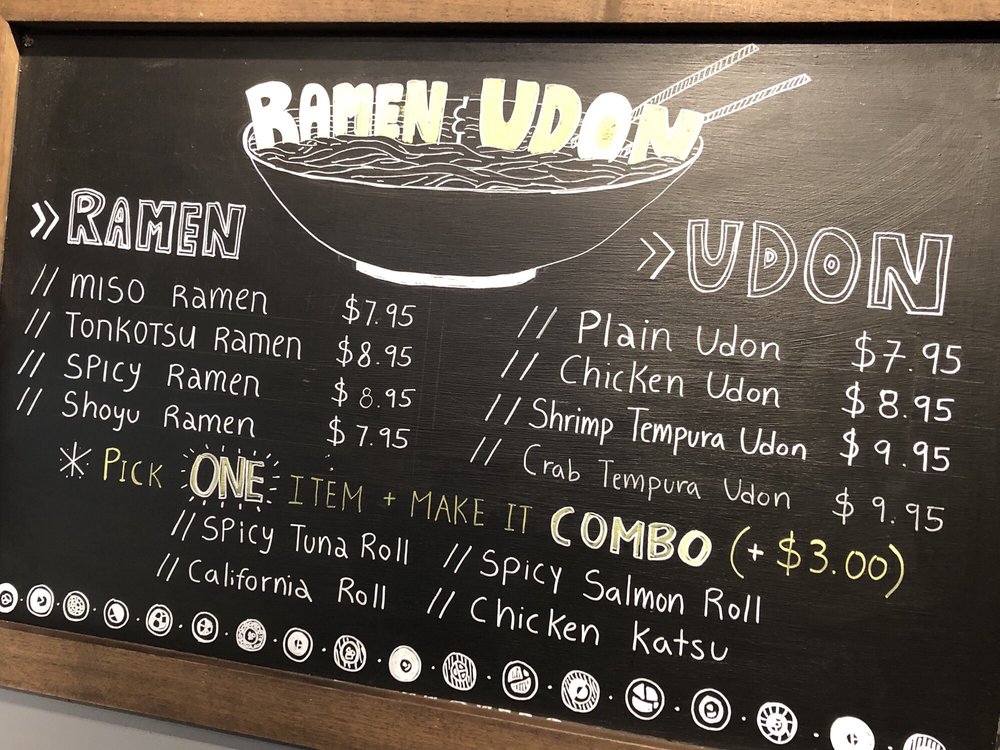 RAMEN & UDON
» RAMEN
// MISO Ramen $7.95
// TONKOTSU Ramen $8.95
// SPICY Ramen $8.95
// Shoyu Ramen $7.95
» UDON
// Plain Udon $7.95
// Chicken Udon $8.95
// Shrimp Tempura Udon $9.95
// Crab Tempura Udon $9.95
* PICK ONE ITEM + MAKE IT COMBO (+ $3.00)
// SPICY Tuna Roll
// California Roll
// SPICY Salmon Roll
// Chicken Katsu